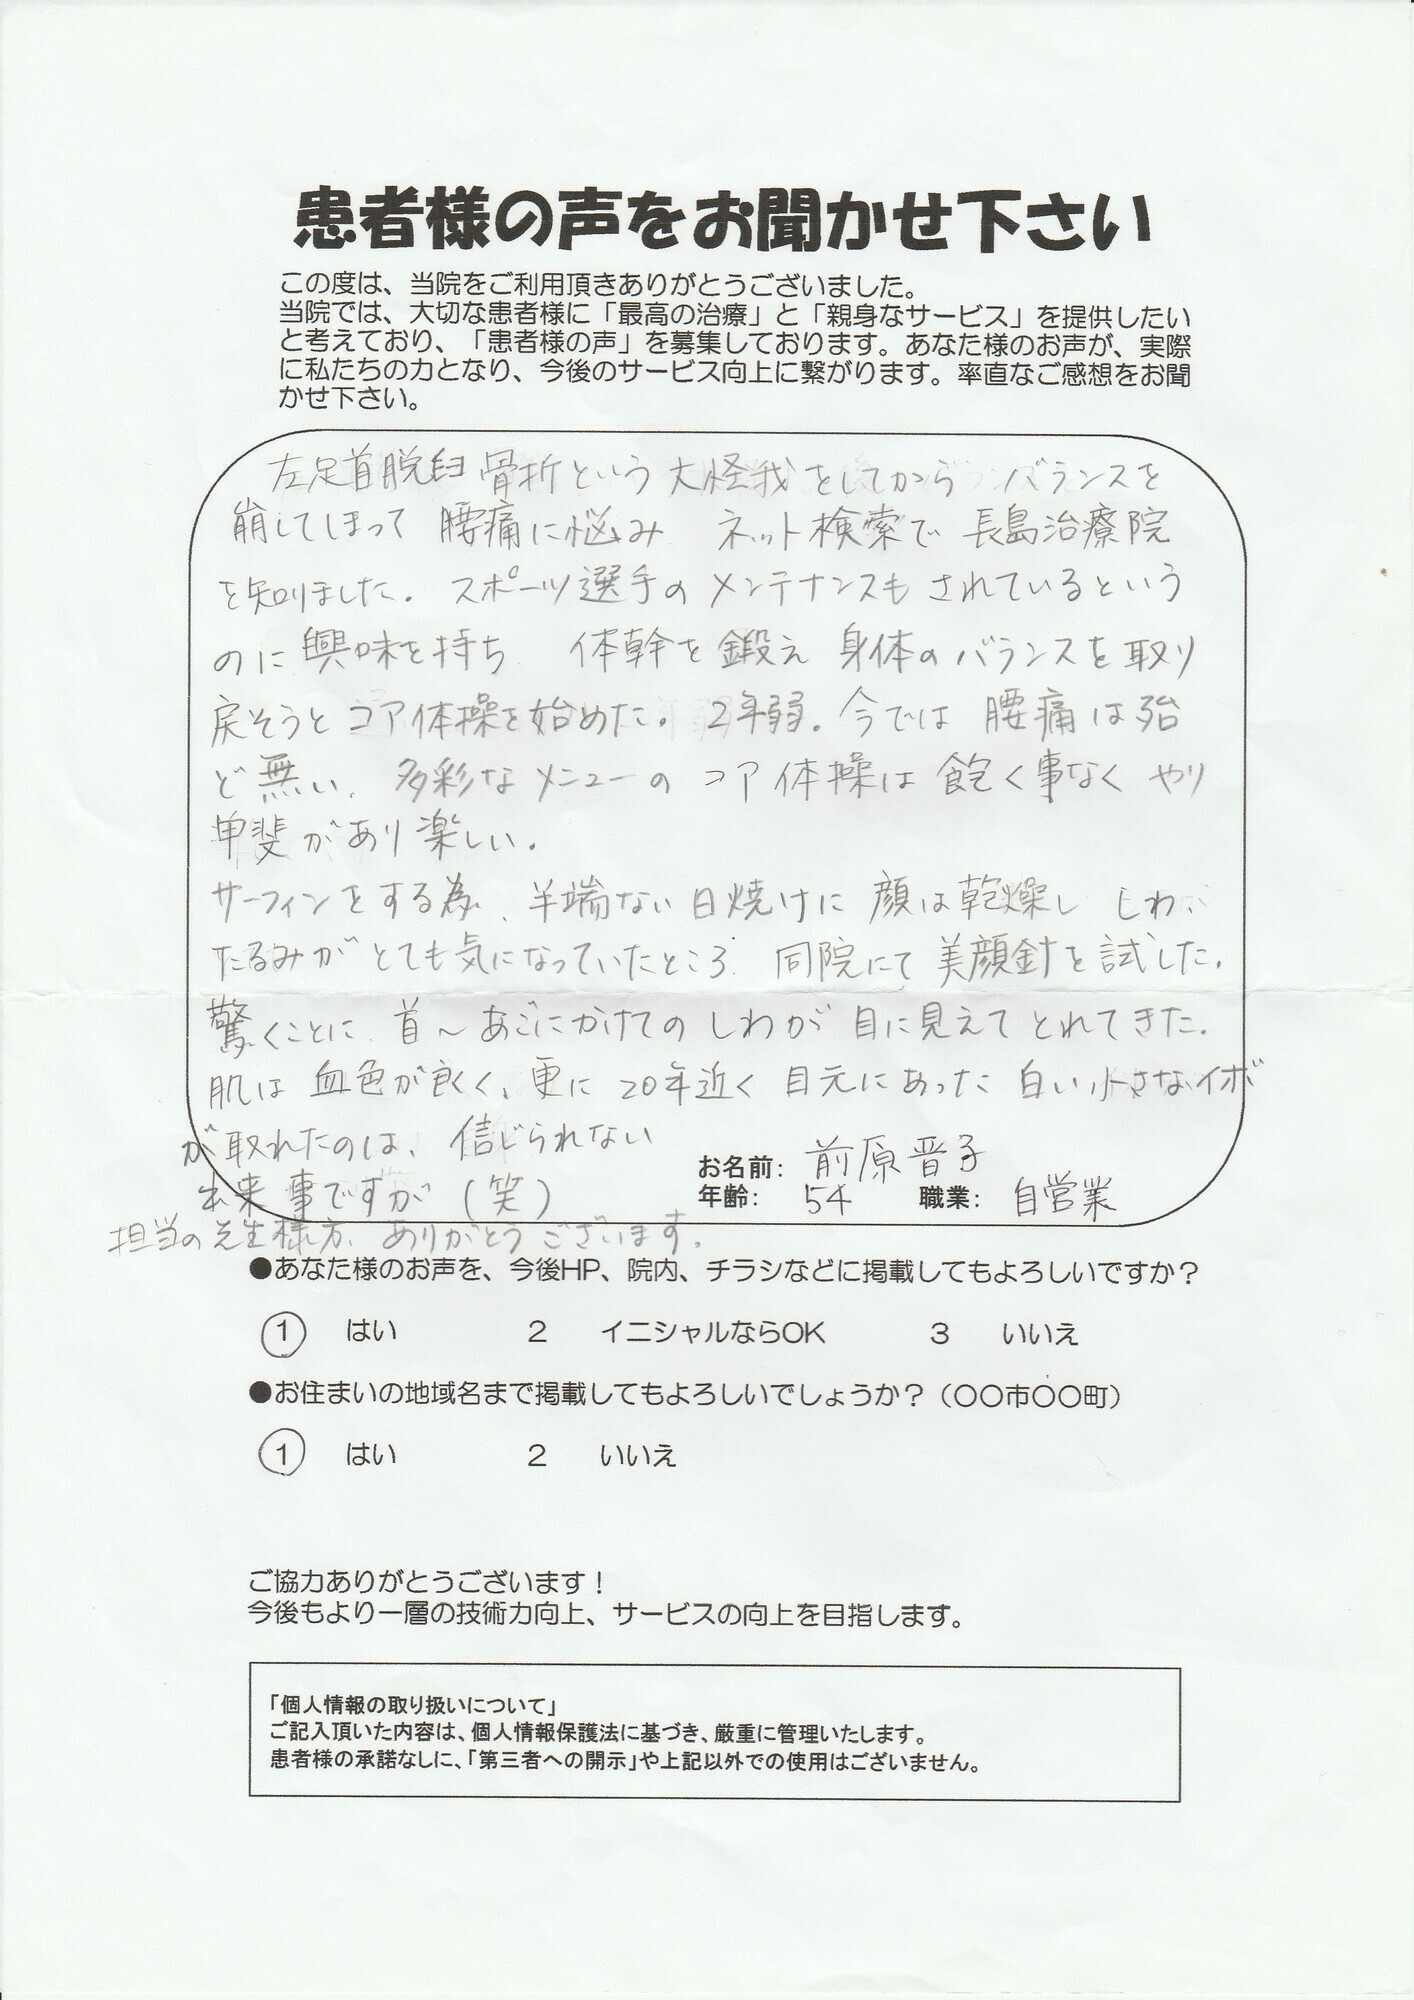 患者様の声をお聞かせ下さい
この度は、当院をご利用頂きありがとうございました。
当院では、大切な患者様に「最高の治療」と「親身なサービス」を提供したい
と考えており、「患者様の声」を募集しております。あなた様のお声が、実際
に私たちの力となり、今後のサービス向上に繋がります。率直なご感想をお聞
かせ下さい。
左足首脱臼骨折という大怪我をしてから バランスを
崩してしまって 腰痛に悩み ネット検索で 長島治療院
を知りました。スポーツ選手の メンテナンスも されているという
のに興味を持ち 体幹を鍛え 身体のバランスを取り
戻そうと コア体操を始めた。2年弱。今では 腰痛は殆
ど無い、多彩なメニューの コア体操は 飽く事なく やり
甲斐があり楽しい。
サーフィンをする為、半端ない日焼けに 顔は乾燥し しわ、
たるみが とても気になっていたところ 同院にて 美顔針を試した。
驚くことに 首〜あごにかけての しわが 目に見えて とれてきた。
肌は 血色が良く、更に 20年近く 目元にあった 白い小さなイボ
が取れたのは、信じられない
出来事ですが (笑)
お名前: 前原晋子
年齢: 54 職業: 自営業
担当の先生様方、ありがとうございます。
●あなた様のお声を、今後HP、院内、チラシなどに掲載してもよろしいですか？
1 はい 2 イニシャルならOK 3 いいえ
●お住まいの地域名まで掲載してもよろしいでしょうか？（〇〇市〇〇町）
1 はい 2 いいえ
ご協力ありがとうございます！
今後もより一層の技術力向上、サービスの向上を目指します。
「個人情報の取り扱いについて」
ご記入頂いた内容は、個人情報保護法に基づき、厳重に管理いたします。
患者様の承諾なしに、「第三者への開示」や上記以外での使用はございません。